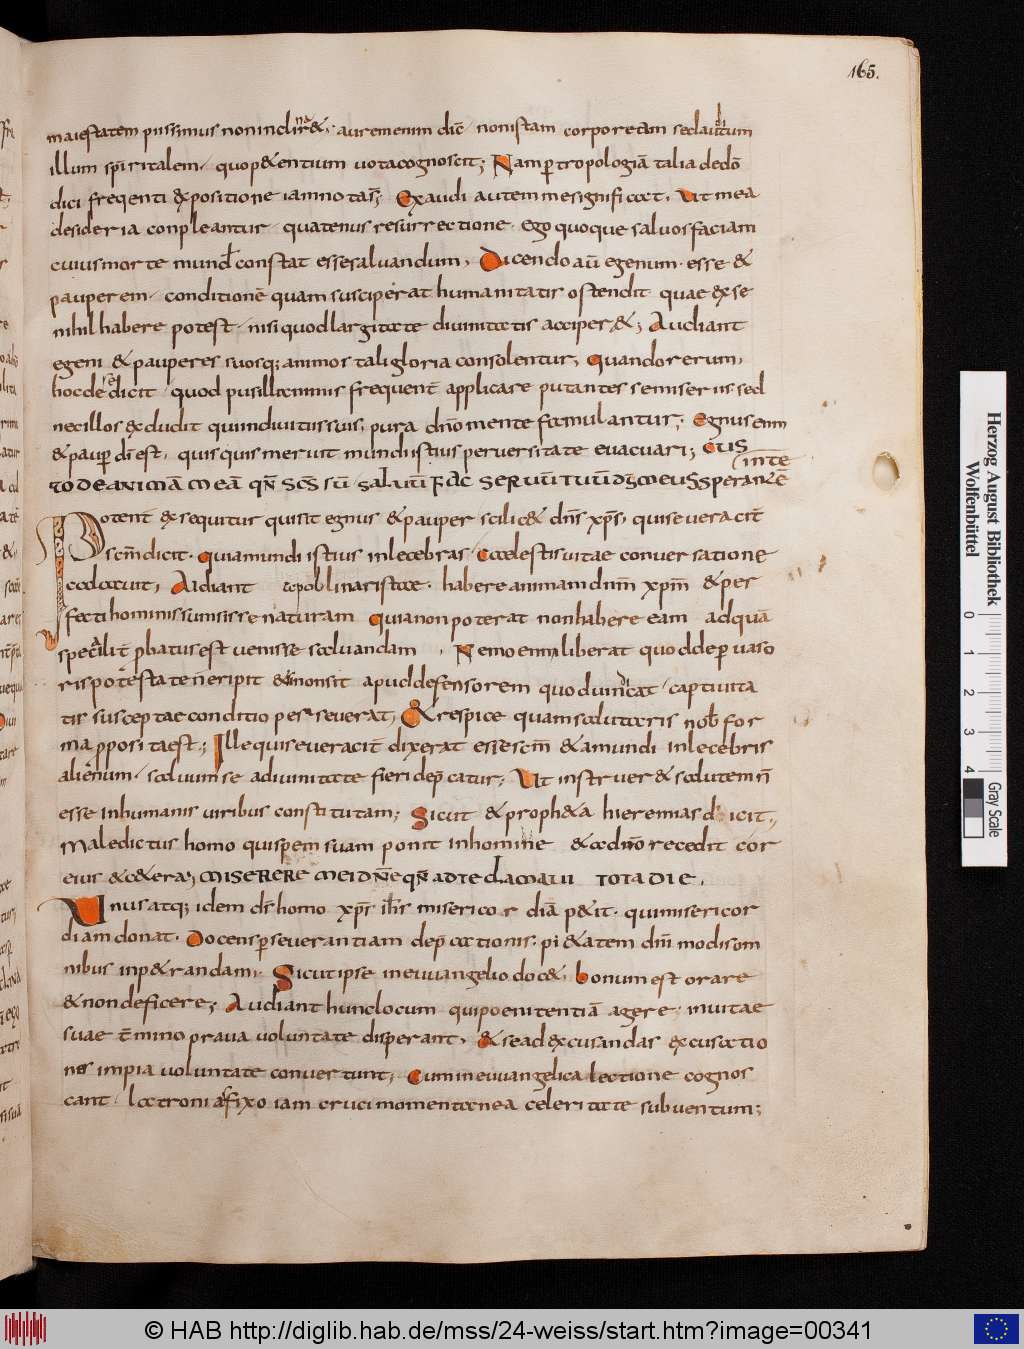 165.
maiestatem piissimus non inclinar&. aurem enim dic̄ non istam corpoream sed auditum
illum spiritalem, quo p&entium uota cognoscit; Nam per tropologiā talia de dō
dici freqenti expositione iam notas̄; Exaudi autem me significat. Ut mea
desideria conpleantur quatenus resurrectione. ego quoque saluos faciam
cuius morte mund̄ constat esse saluandum, Dicendo aū egenum esse &
pauperem, conditionē quam susciperat humanitatis ostendit quae ex se
nihil habere potest, nisi quod largitate diuinitatis acciper&; Audiant
egeni & pauperes suosq; animos tali gloria consolentur, Quando rerum,
hoc de se dicit, quod pusillanimis frequent̄ applicare putantes se miseriis. sed
nec illos excludit qui indiuitus suis, pura dn̄o mente famulantur; Egnus enim
& paup di est, quisquis meruit mundi istius peruersitate euacuari; CUS
TODE ANIMĀ MEĀ QN̄ SC̄S SŪ SALUŪ FAC SERUŪ TUŪ DS̄ MEUS SPERANTĒ
IN TĒ
Potent̄ exsequitur quis sit egnus & pauper scilic& dn̄s xp̄s, qui se ueracit̄
scm̄ dicit. Quia mundi istius inlecebras. Caelestis uitae conuersatione
calcauit, Audiant apollinaristae. habere animam dnm̄ xpm̄ & per
fecti hominis sumsisse naturam Quia non poterat non habere eam ad quā
specialit̄ pbatus est uenisse saluandam, Nemo enim liberat quod deper uaso
ris potestate n̄ eripit & si non sit apud defensorem quod uindicat captiuita
tis susceptae conditio perseuerat, & respice quam salutaris nob̄ for
ma pposita est; Ille qui se ueracit̄ dixerat esse scm̄ & a mundi inlecebris
alienum, saluum se a diuinitate fieri depcatur; Ut instruer& salutem n̄
esse in humanis uiribus constitutam; Sicut & proph&a hieremias dicit.
Maledictus homo qui spem suam ponit in homine & a dn̄o recedit cor
eius & c&era; MISERERE MEI DN̄E QN̄ AD TE CLAMAUI TOTA DIE.
Unus atq; idem dr̄ homo xp̄s ih̄s misericordiā p&it. qui misericor
diam donat. Docens pseuerantiam depcationis. pi&atem dn̄i mod is om
nibus inp&randam. Sicut ipse in euuangelio doc&, bonum est orare
& non deficere; Audiant hunc locum qui poenitentiā agere. in uitae
suae t̄mino praua uoluntate disperant, & se ad excusandas excusatio
nes impia uoluntate conuertunt; Cum in euuangelica lectione cognos
cant latroni affixo iam cruci momentanea celeritate subuentum;
Herzog August Bibliothek
Wolfenbüttel
0 1 2 3 4
Gray Scale
© HAB http://diglib.hab.de/mss/24-weiss/start.htm?image=00341